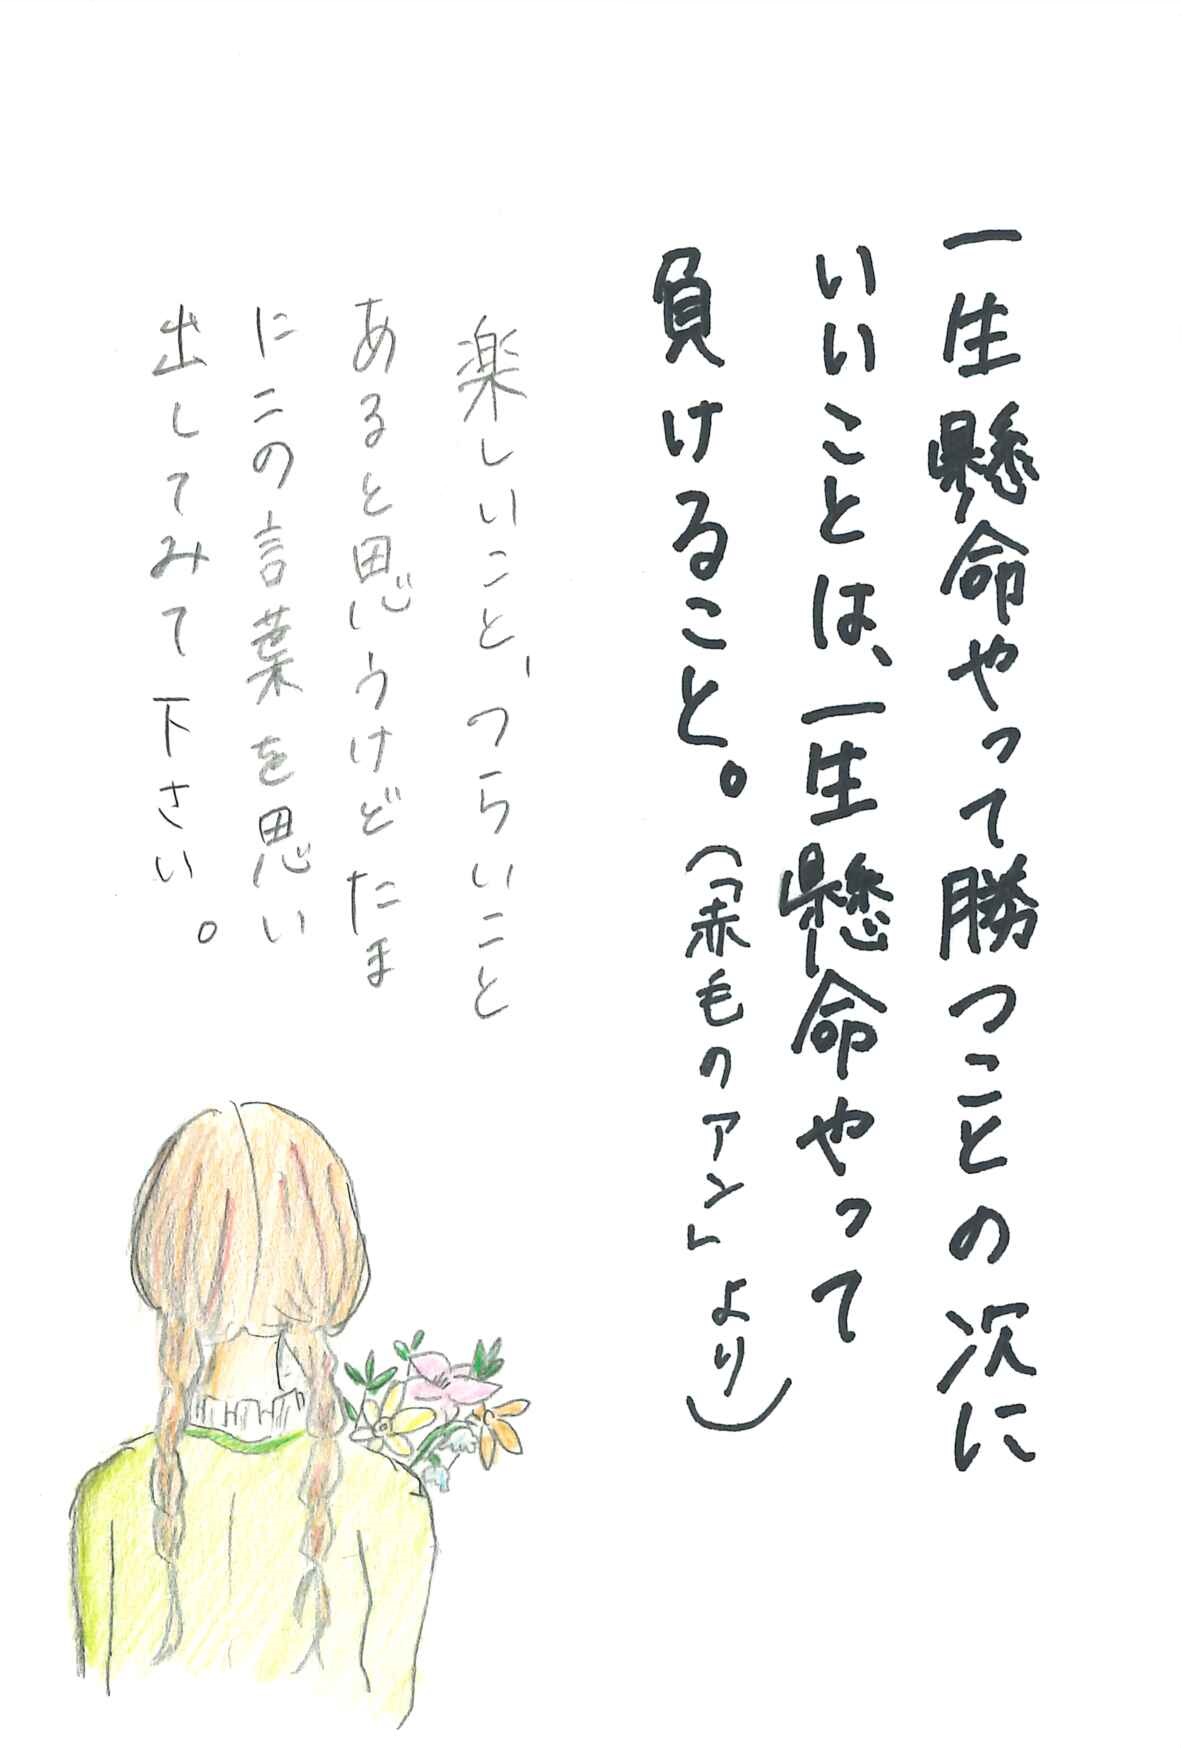 一生懸命やって勝つことの次に
いいことは、一生懸命やって
負けること。(「赤毛のアン」より)
楽しいこと、つらいこと
あると思うけどたま
にこの言葉を思い
出してみて下さい。